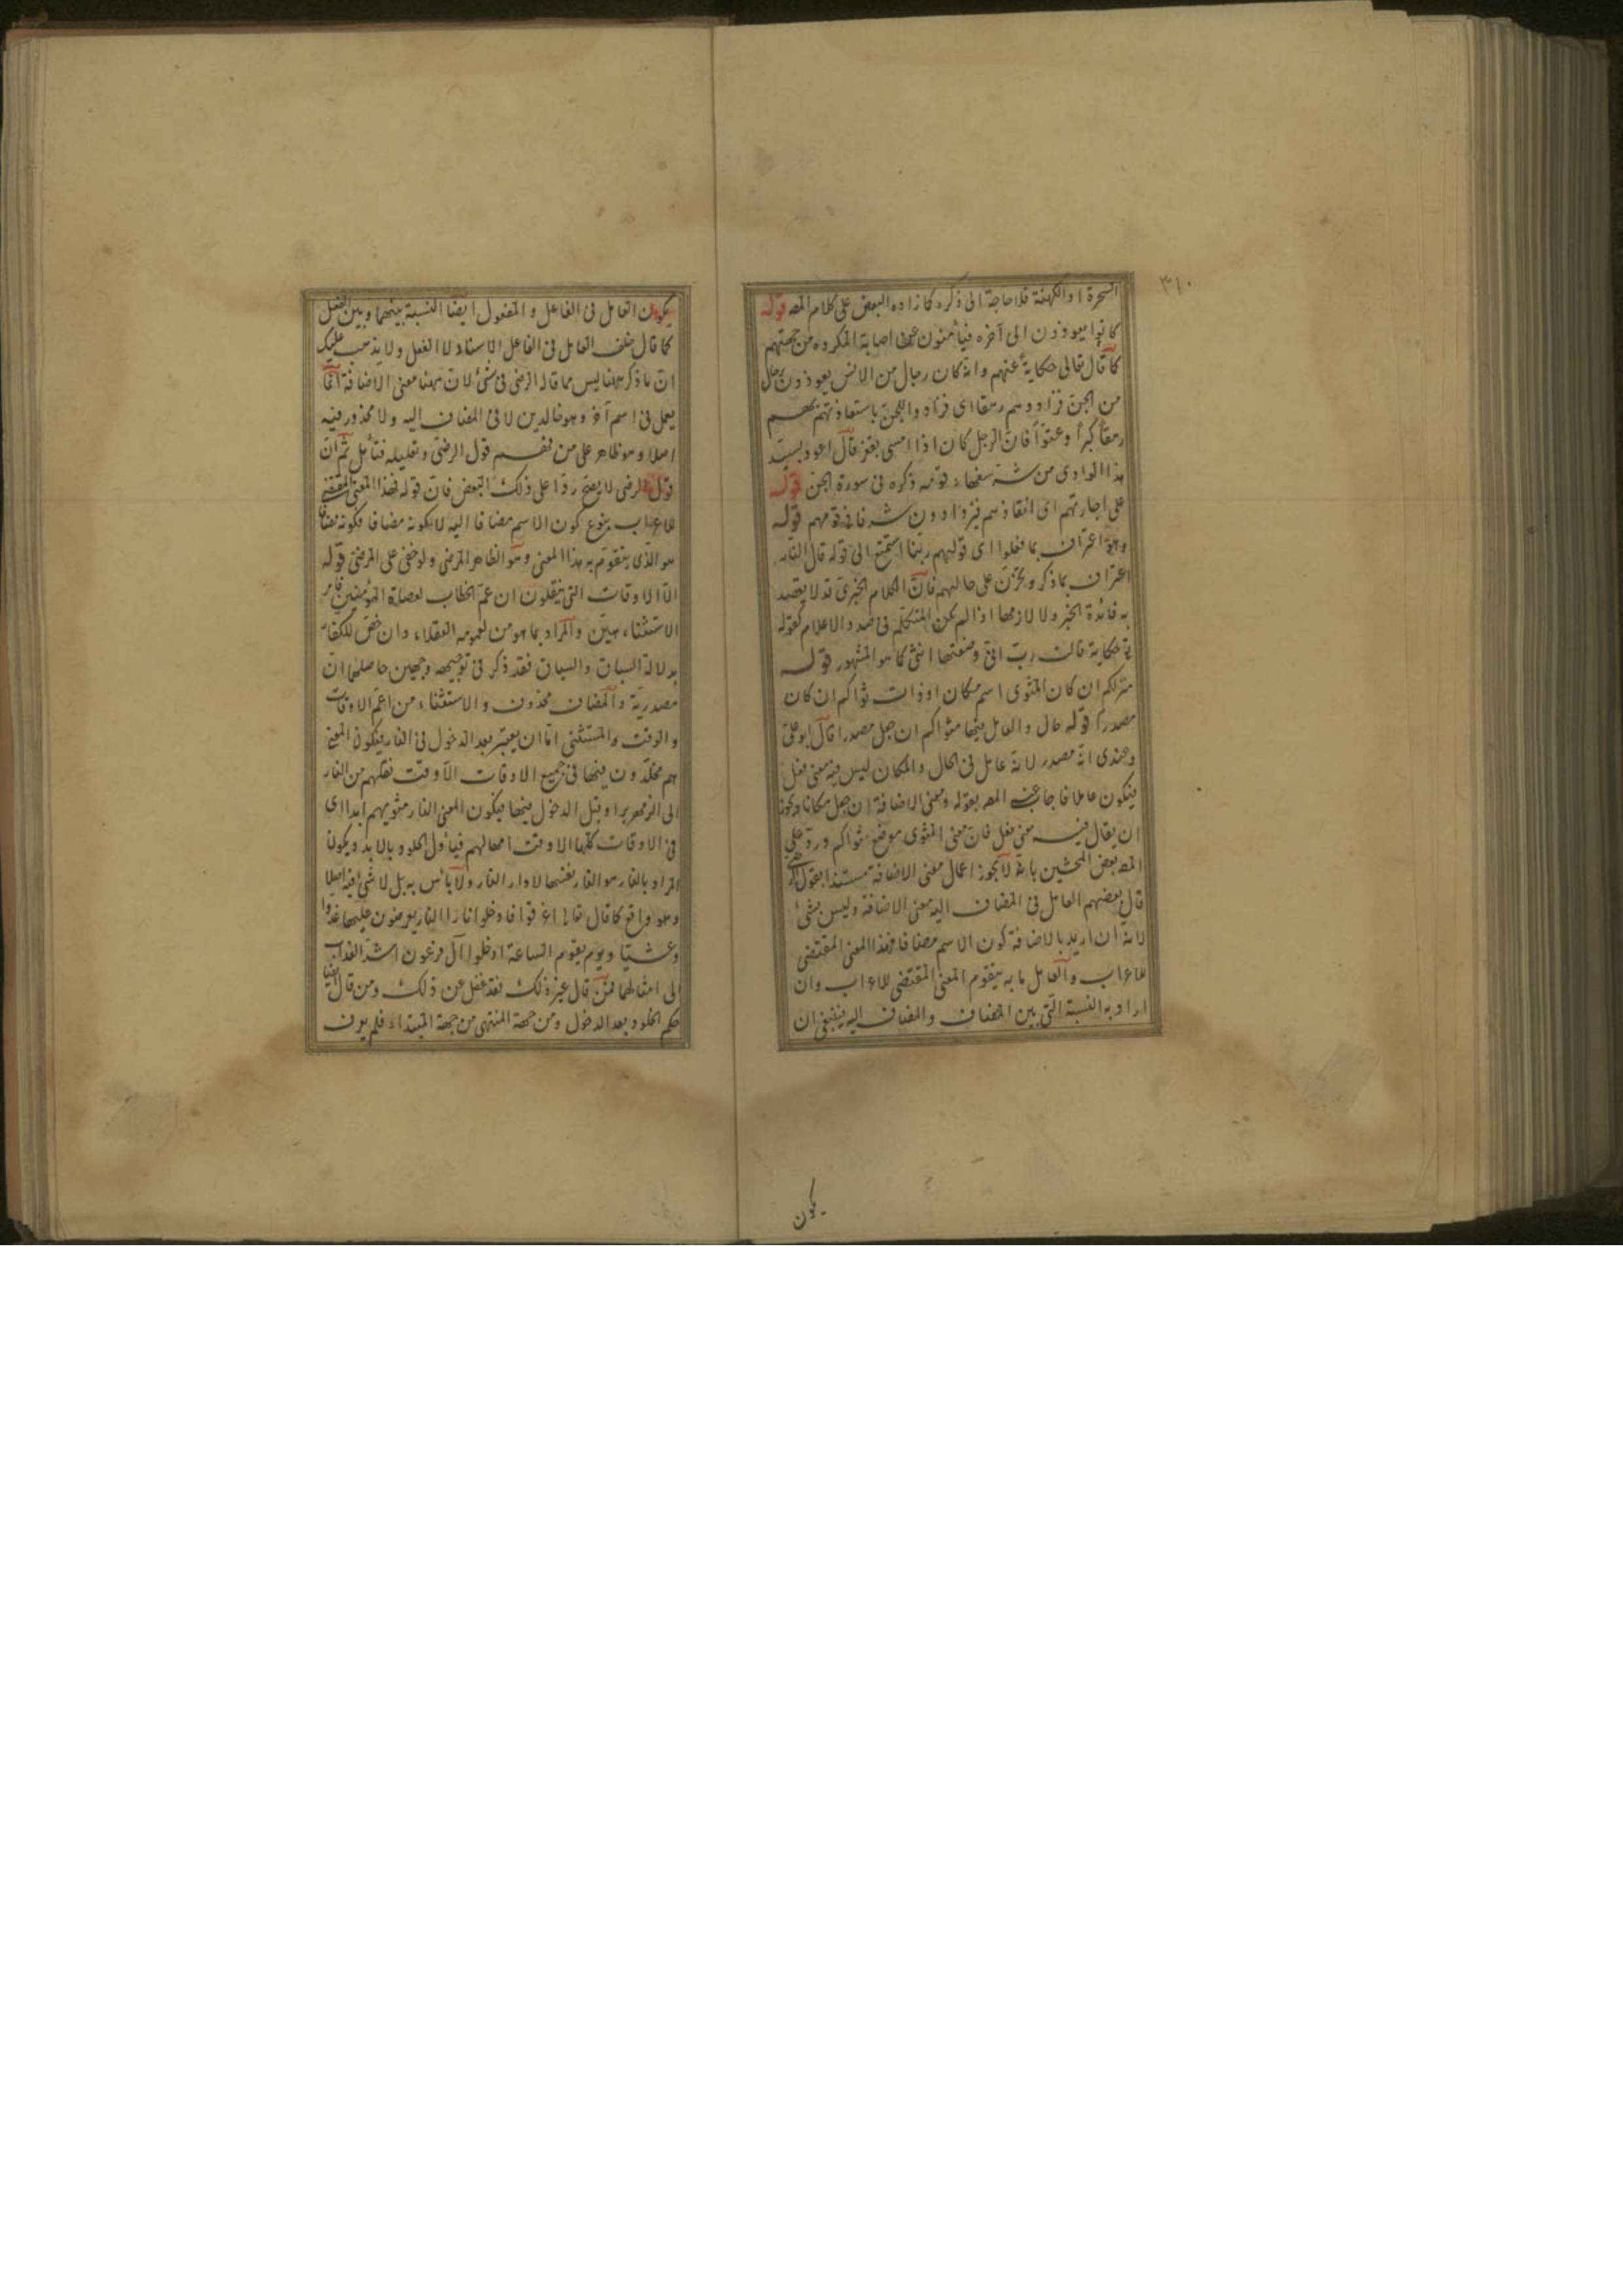 ٣١٠
السحرة او الكهنة فلا حاجة الى ذكره كما زاده البعض على كلام المصـ قوله
كانوا يعوذون الى آخره فيأمنون عن اصابة المكروه من جهتهم
كما قال تعالى حكاية عنهم وانه كان رجال من الانس يعوذون برجال
من الجن فزادوهم رهقا اى فزادوا الجن باستعاذتهم بهم
رهقا كبرا وعتوا فان الرجل كان اذا امسى بقفر قال اعوذ بسيد
هذا الوادى من شر سفهاء قومه ذكره فى سورة الجن قوله
على اجارتهم اى انقاذهم فيزدادون شرفا فى قومهم قوله
وهو اعتراف بما فعلوا اى قولهم ربنا استمتع الى قوله قال النار
اعتراف بما ذكر وتحزن على حالهم فان الكلام الخبرى قد لا يقصد
به فائدة الخبر ولا لازمها اذا لم يكن المتكلم فى صدد الاعلام كقوله
تع حكاية قالت رب انى وضعتها انثى كما هو المشهور قوله
منزلكم ان كان المثوى اسم مكان او ذات ثواكم ان كان
مصدرا قوله حال والعامل فيها مثواكم ان جعل مصدرا قال ابو على
وعندى انه مصدر لانه عامل فى الحال والمكان ليس فيه معنى فعل
فيكون عاملا فاجاب عنه المصـ بقوله ومعنى الاضافة ان جعل مكانا ويجوز
ان يقال فيه معنى فعل فان معنى المثوى موضع ثواكم ورد على
المصـ بعض المحشين بانه لا يجوز اعمال معنى الاضافة مستندا بقول الرضى
قال بعضهم العامل فى المضاف اليه معنى الاضافة وليس بشئ
لانه ان اريد بالاضافة كون الاسم مضافا فهذا المعنى المقتضى
للاعراب والعامل ما به يتقوم المعنى المقتضى للاعراب وان
اراد به النسبة التى بين المضاف والمضاف اليه فينبغى ان
يكون
يكون العامل فى الفاعل والمفعول ايضا النسبة بينهما وبين الفعل
كما قال خلف العامل فى الفاعل الاسناد لا الفعل ولا يذهب عليك
ان ما ذكر ههنا ليس مما قاله الرضى فى شئ لان ههنا معنى الاضافة انما
يعمل فى اسم آخر وهو خالدين لا فى المضاف اليه ولا محذور فيه
اصلا وهو ظاهر على من فهم قول الرضى وتعليله فتأمل ثم ان
قول الرضى لا يصح ردا على ذلك البعض فان قوله فهذا المعنى المقتضى
للاعراب ممنوع كون الاسم مضافا اليه لا كونه مضافا فكونه مضافا
هو الذى يتقوم به هذا المعنى وهو الظاهر المرضى ولو خفى على الرضى قوله
الا الاوقات التى ينقلون ان عم الخطاب لعصاة المؤمنين فامر
الاستثناء هين والمراد بما هو من لعمومه العقلاء وان خص للكفار
بدلالة السباق والسياق فقد ذكر فى توجيهه وجهين حاصلهما ان
مصدرية والمضاف محذوف والاستثناء من اعم الاوقات
والوقت والمستثنى اما ان يعتبر بعد الدخول فى النار فيكون المعنى
هم مخلدون فيها فى جميع الاوقات الا وقت نقلهم من النار
الى الزمهرير او قبل الدخول فيها فيكون المعنى النار مثويهم ابدا اى
فى الاوقات كلها الا وقت امهالهم فيأول الخلود بالابد ويكون
المراد بالنار هو النار نفسها لا دار النار ولا بأس به بل لا شئ فيه اصلا
وهو واقع كما قال تعالى اغرقوا فادخلوا نارا النار يعرضون عليها غدوا
وعشيا ويوم يقوم الساعة ادخلوا آل فرعون اشد العذاب
الى امثالهما فمن قال غير ذلك فقد غفل عن ذلك ومن قال ايضا
حكم الخلود بعد الدخول ومن جهة المنتهى من جهة المبتداء فلم يعرف